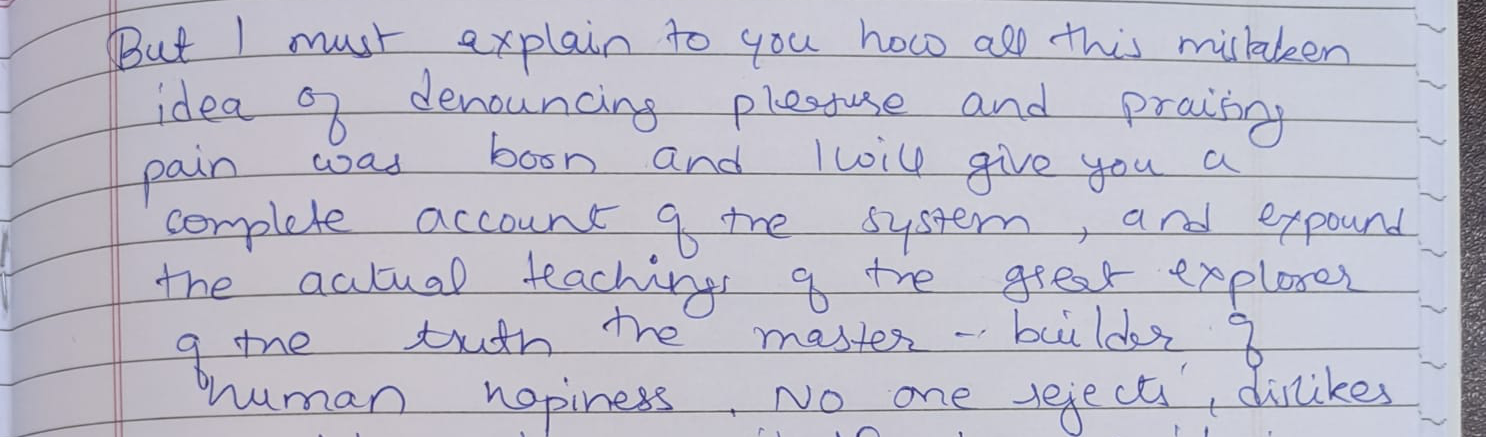 But I must explain to you how all this mistaken
idea of denouncing pleasure and praising
pain was born and I will give you a
complete account of the system, and expound
the actual teachings of the great explorer
of the truth the master-builder of
human hapiness. No one rejects, dislikes